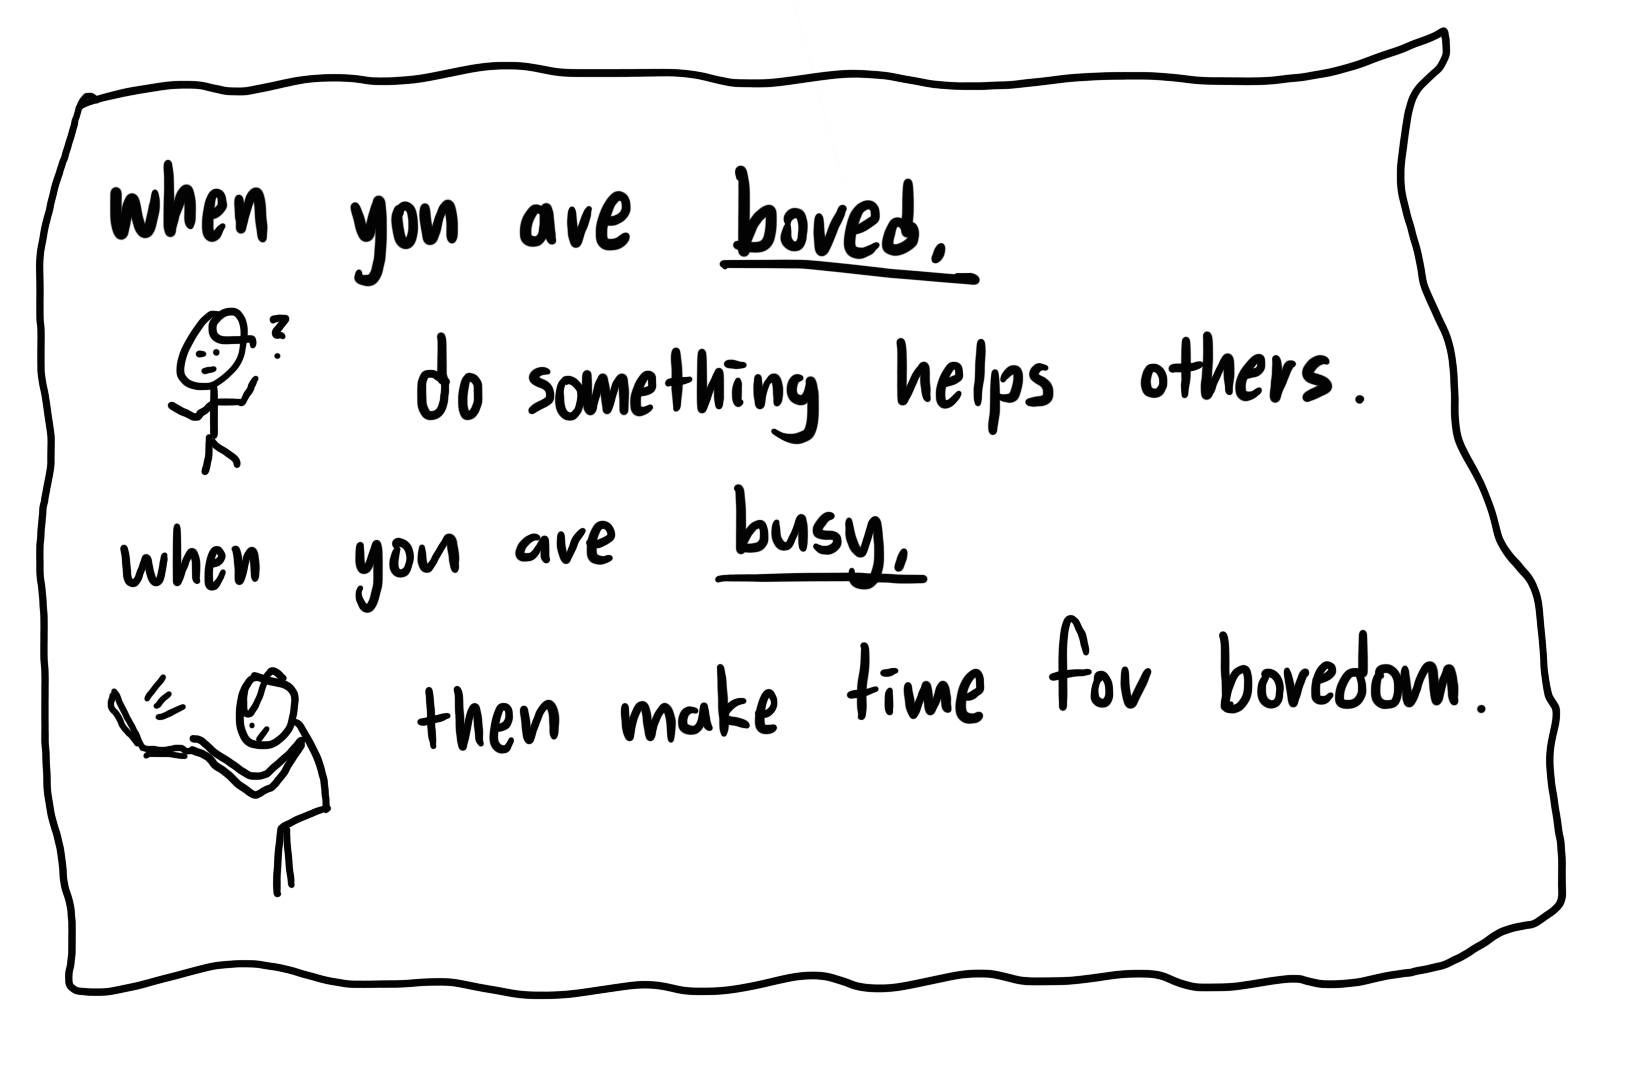 when you are bored,
?
do something helps others.
when you are busy,
then make time for boredom.